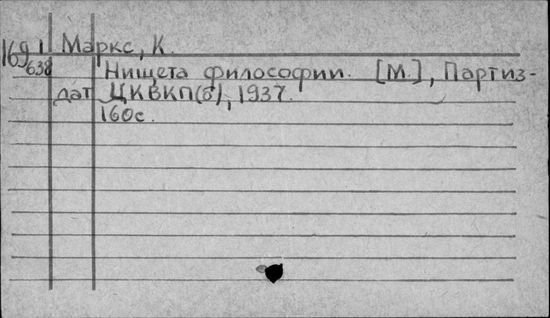 169 1 Маркс, К.
638 Нищета философии. [М.], Партиз-
дат ЦКВКП(б), 1937.
160с.